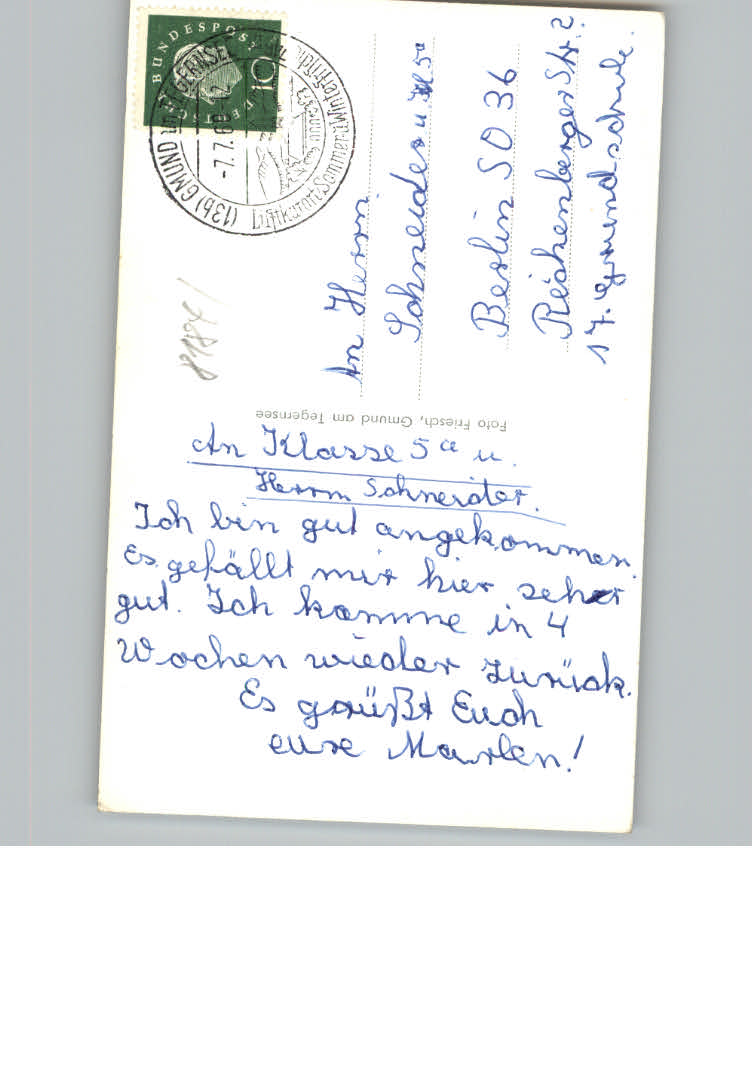 BUNDESPOST
DEUTSCHE
10
(13b) GMUND am TEGERNSEE
-7.7.60
Luftkurort Sommer u. Winterfrische
An Herrn
Schneider u. Kl 5a
Berlin SO 36
Reichenberger Str. 2
17. Grundschule.
Foto Friesch, Gmund am Tegernsee
An Klasse 5a u.
Herrn Schneider.
Ich bin gut angekommen.
Es gefällt mir hier sehr
gut. Ich komme in 4
Wochen wieder zurück.
Es grüßt Euch
eure Marlen!